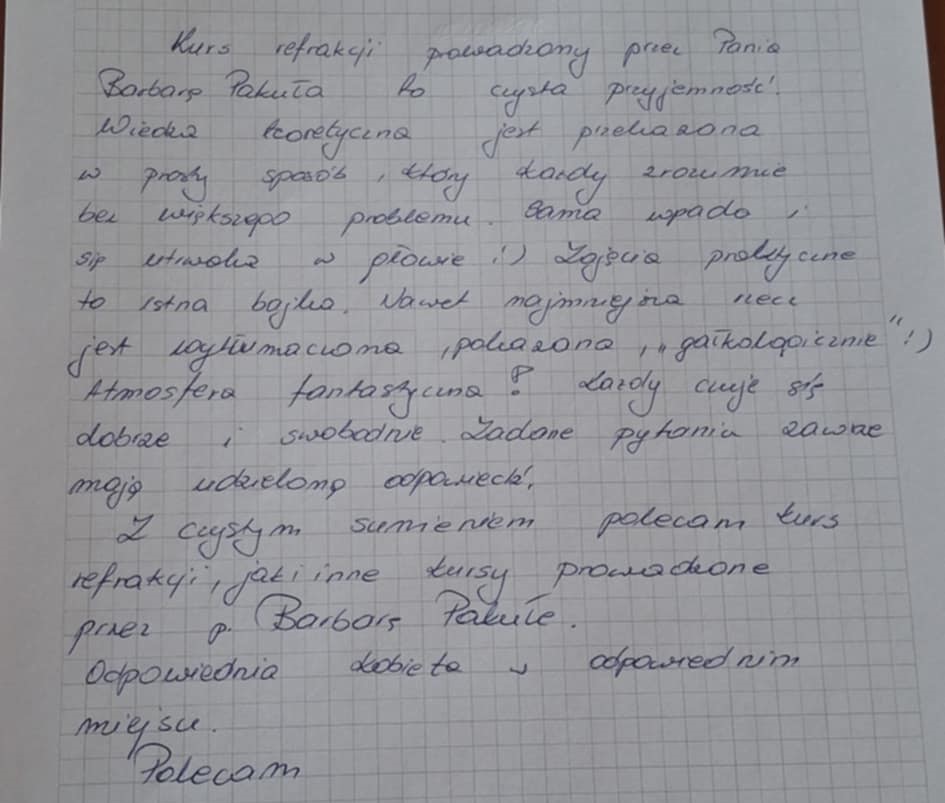 Kurs refrakcji prowadzony przez Panią
Barbarę Pakuła to czysta przyjemność!
Wiedza teoretyczna jest przekazana
w prosty sposób, który każdy zrozumie
bez większego problemu. Sama wpada i
się utrwala w głowie :) Zajęcia praktyczne
to istna bajka. Nawet najmniejsza rzecz
jest wytłumaczona, pokazana, „gałkologicznie” :)
Atmosfera fantastyczna! Każdy czuje się
dobrze i swobodnie. Zadane pytania zawsze
mają udzieloną odpowiedź.
Z czystym sumieniem polecam kurs
refrakcji, jak i inne kursy prowadzone
przez p. Barbarę Pakułę.
Odpowiednia kobieta w odpowiednim
miejscu.
Polecam